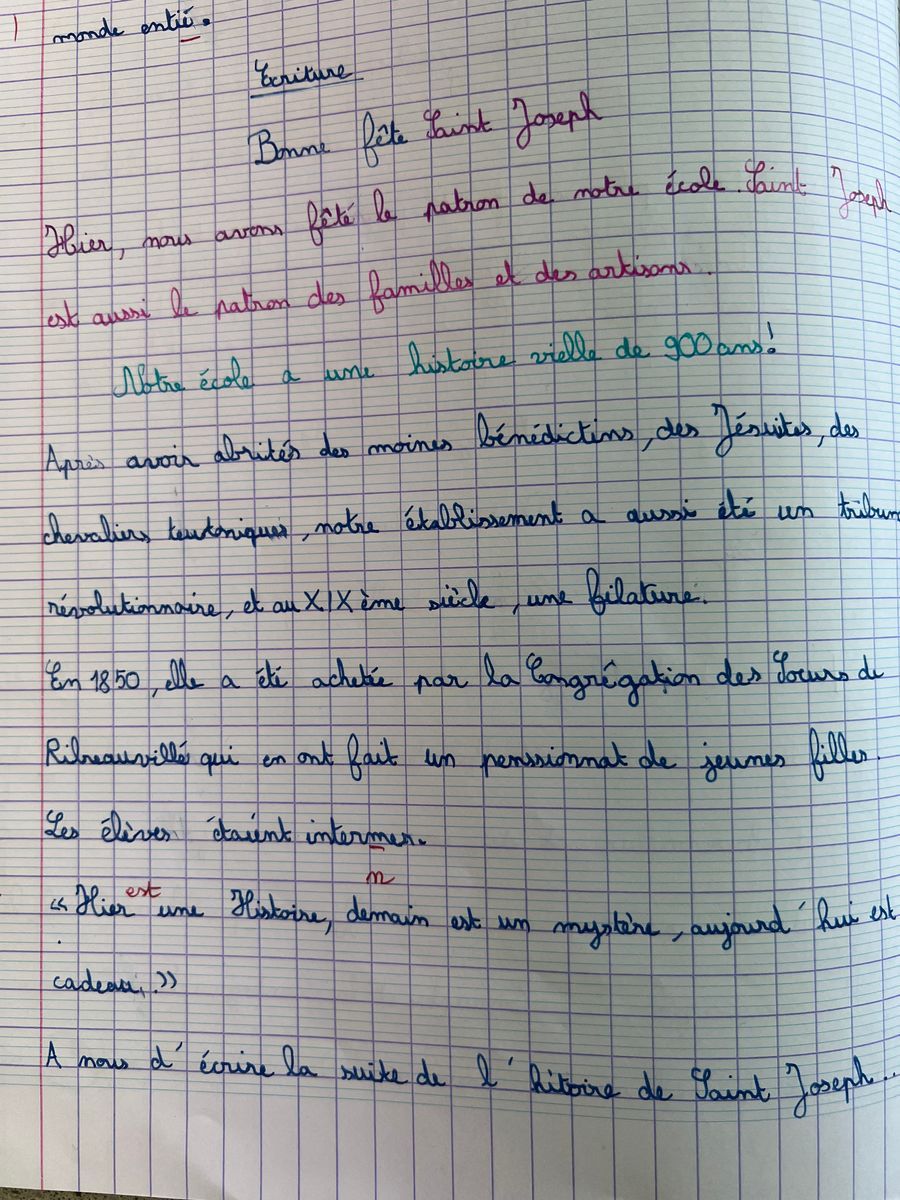 monde entié.
Ecriture
Bonne fête Saint Joseph
Hier, nous avons fêté le patron de notre école. Saint Joseph
est aussi le patron des familles et des artisans.
Notre école a une histoire vielle de 900 ans!
Après avoir abrités des moines bénédictins, des Jésuites, des
chevaliers teutoniques, notre établissement a aussi été un tribun
révolutionnaire, et au XIXème siècle, une filature.
En 1850, elle a été achetée par la Congrégation des Soeurs de
Ribeauvillé qui en ont fait un penssionnat de jeunes filles.
Les élèves étaient intermes.
n
« Hier est une Histoire, demain est un mystère, aujourd'hui est
cadeau. »
A nous d'écrire la suite de l'hitoire de Saint Joseph...